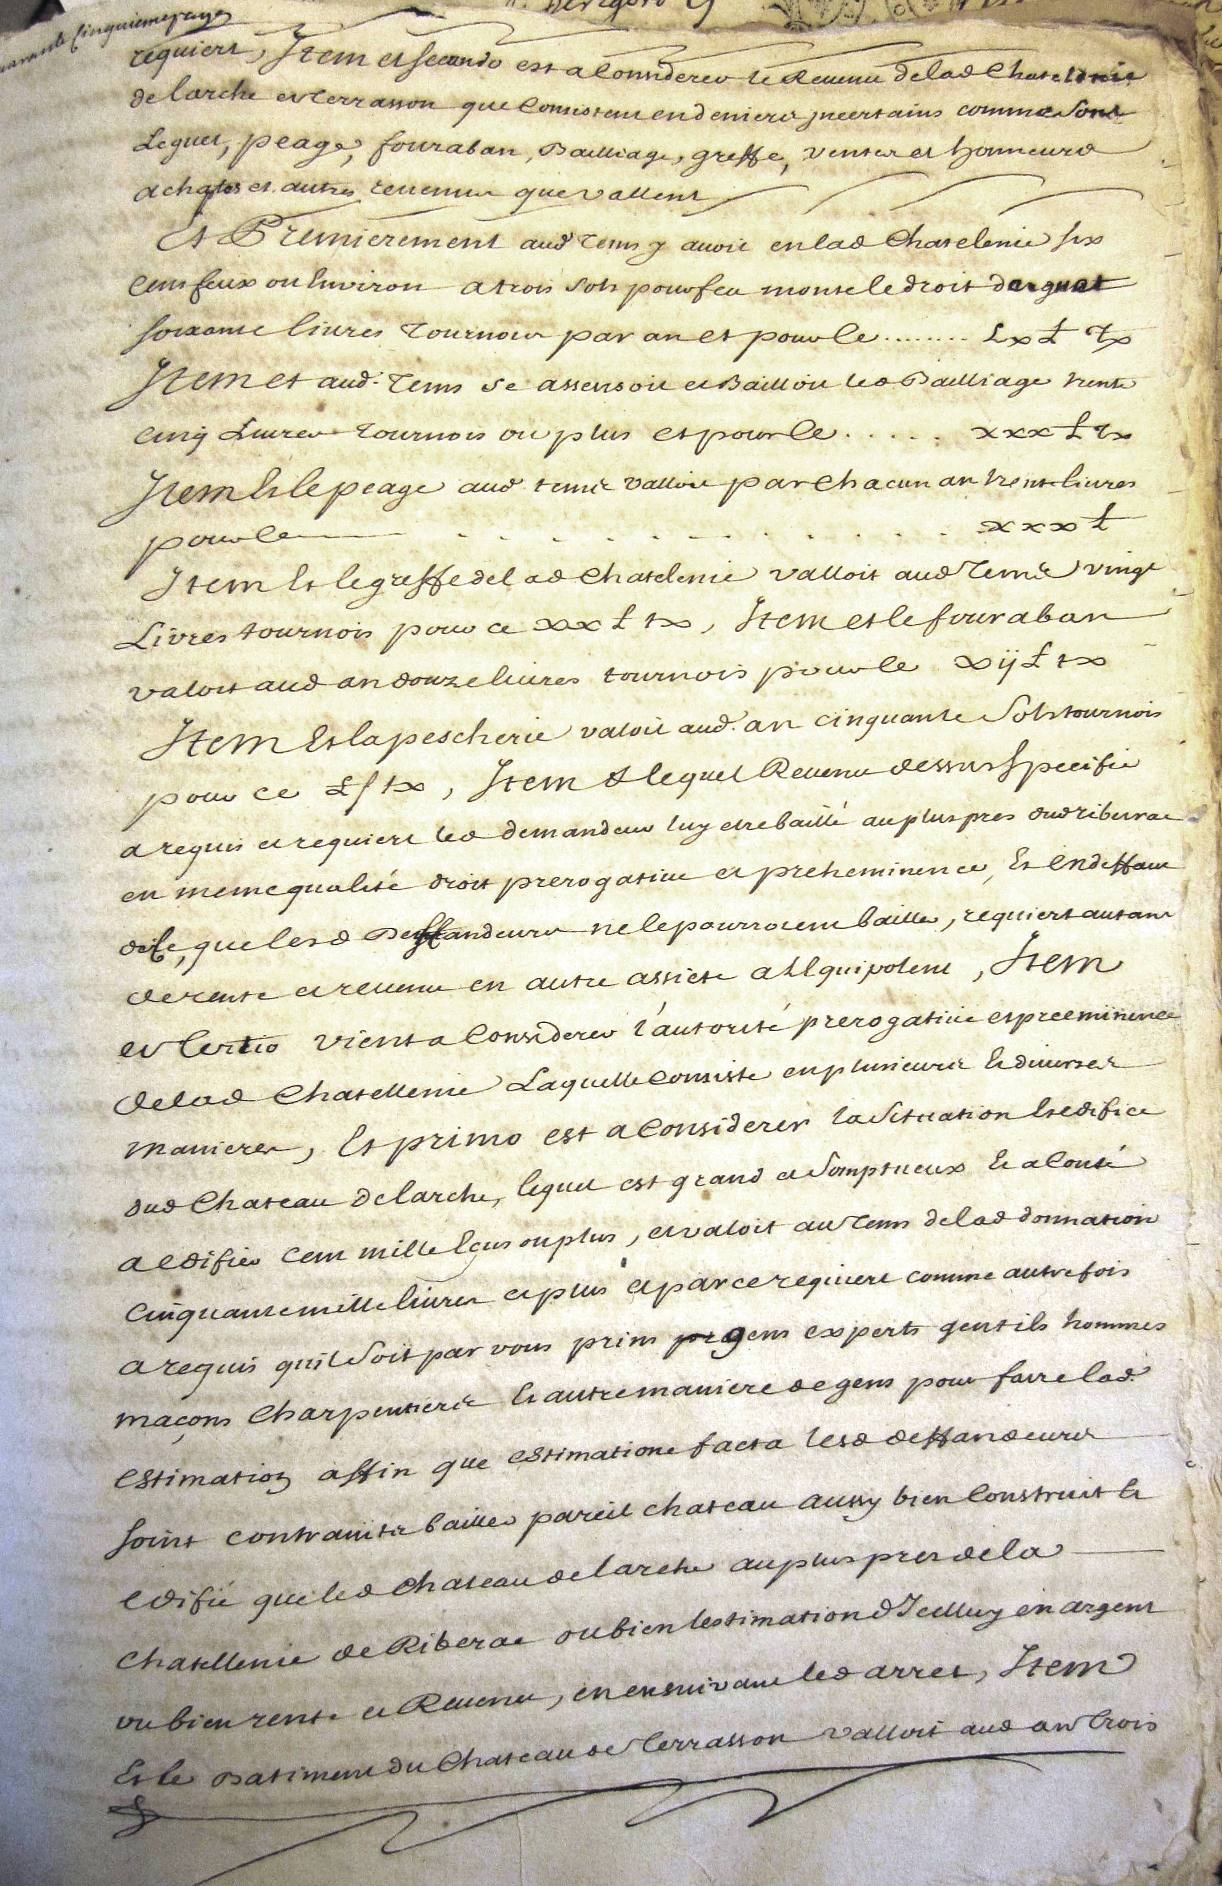 Cinquieme page
requiert, Item et secundo est a Considerer le Revenu delad Chatelenie
delarche et Terrasson que Consistent en deniers jncertains comme sont
Leguet, peage, fouraban, Bailliage, greffe, ventes et honneurs
achaptes et autres revenus que vallent
Et Premierement aud tems y avoit en lad Chatelenie six
Cens feux ou Environ a trois sols pour feu monte le droit du guet
soixante livres Tournois par an et pour le ........ Lx ₶ tx
Item et aud. Tems se assensoit et Bailloit led Bailliage trente
cinq Livres tournois ou plus et pour le ..... xxx ₶ tx
Item Et le peage aud tems valloit par Chacun an trente livres
pour le . . . . . . . . . . . . xxx ₶
Item Et le greffe delad Chatelenie valloit aud Tems vingt
Livres tournois pour ce xx ₶ tx, Item et le fouraban
valoit aud an douze livres tournois pour le xij ₶ tx
Item Et la pescherie valoit aud. an cinquante Sols tournois
pour ce L s tx, Item & lequel Revenu dessus specifié
a requis et requiert led demandeur luy etre baillé au plus pres dud riberac
en meme qualité droit prerogative et preheminence, Et en deffaut
de ce, que lesd Deffandeurs ne le pourroient bailler, requiert autant
de rente et revenu en autre assiete a l Equipolent, Item
et tertio vient a Considerer l'autorité prerogative et preeminence
delad Chatellenie Laquelle Consiste en plusieurs Et diverses
manieres, Et primo est a Considerer la Situation Et edifice
dud Chateau de larche, lequel est grand et somptueux Et a Couté
a edifier Cent mille Ecus ou plus, et valoit au Tems delad donnation
cinquante mille livres et plus et par ce requiert comme autrefois
a requis quil soit par vous prins gens experts gentils hommes
maçons Charpentiers Et autre maniere de gens pour faire lad.
estimation affin que estimatione facta lesd deffandeurs
soint contraints bailler pareil chateau aussy bien Construit Et
edifié que led Chateau de larche au plus pres de la
Chatellenie de Riberac ou bien lestimation d'Icelluy en argent
ou bien rente et Revenu, en ensuivant led arret, Item
Et le Batiment du Chateau de Terrasson valloit aud an trois